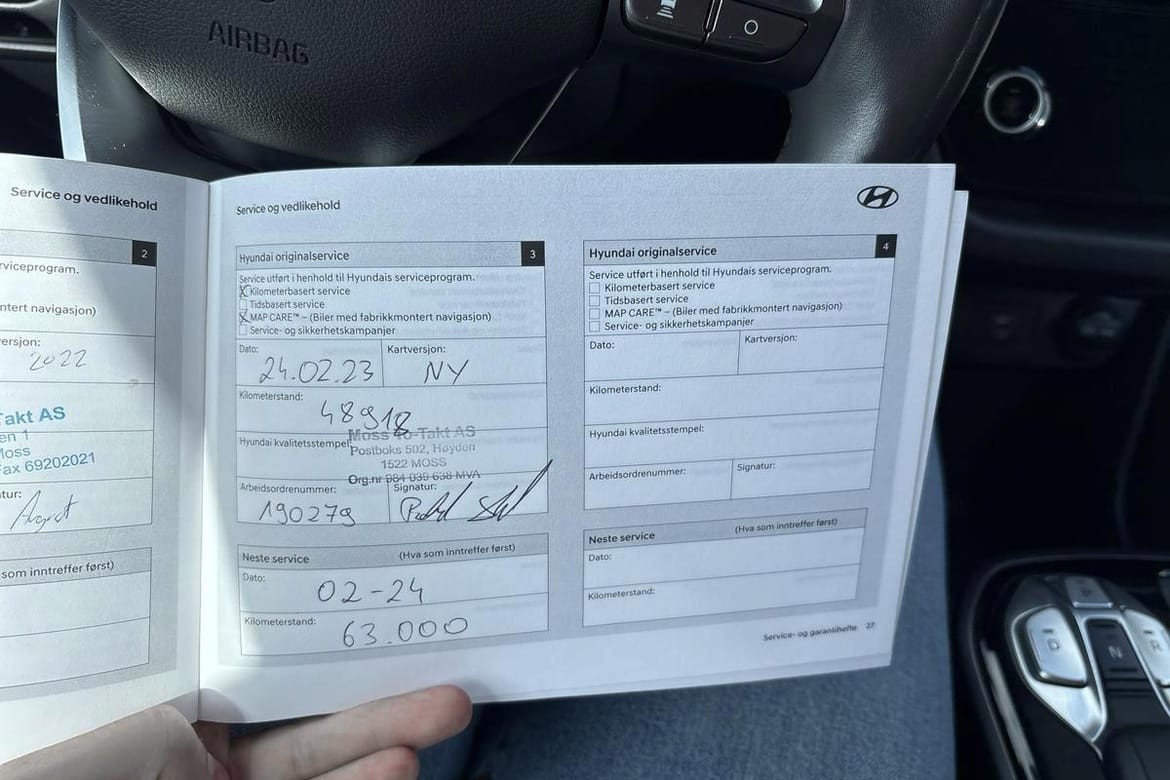 AIRBAG
Service og vedlikehold
2
rviceprogram.
ntert navigasjon)
ersjon:
2022
Takt AS
en 1
Moss
Fax 69202021
tur:
som inntreffer først)
Service og vedlikehold
Hyundai originalservice
3
Service utført i henhold til Hyundais serviceprogram.
Kilometerbasert service
Tidsbasert service
MAP CARE™ – (Biler med fabrikkmontert navigasjon)
Service- og sikkerhetskampanjer
Dato:
24.02.23
Kartversjon:
NY
Kilometerstand:
48918
Hyundai kvalitetsstempel:
Moss 4o-Takt AS
Postboks 502, Høyden
1522 MOSS
Org.nr 984 039 638 MVA
Arbeidsordrenummer:
190279
Signatur:
Neste service
(Hva som inntreffer først)
Dato:
02-24
Kilometerstand:
63.000
Hyundai originalservice
4
Service utført i henhold til Hyundais serviceprogram.
Kilometerbasert service
Tidsbasert service
MAP CARE™ – (Biler med fabrikkmontert navigasjon)
Service- og sikkerhetskampanjer
Dato:
Kartversjon:
Kilometerstand:
Hyundai kvalitetsstempel:
Arbeidsordrenummer:
Signatur:
Neste service
(Hva som inntreffer først)
Dato:
Kilometerstand:
Service- og garantihefte 27
D
N
R